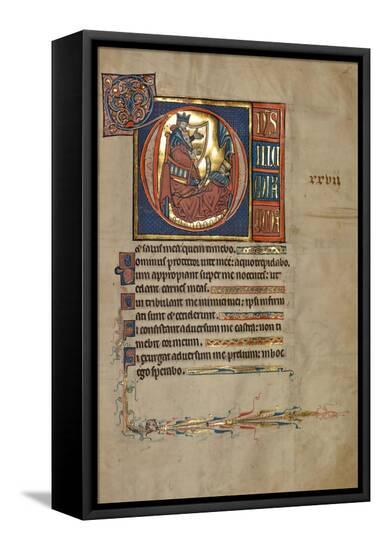 D
NS
ILLU
MI
NA
xxvii
et salus mea quem timebo.
ominus protector vite mee: a quo trepidabo
um appropiant super me nocentes: ut
edant carnes meas.
ui tribulant me inimici mei: ipsi infirm
ati sunt et ceciderunt
i consistant adversum me castra: non ti
mebit cor meum.
i exurgat adversum me prelium: in hoc
ego sperabo.